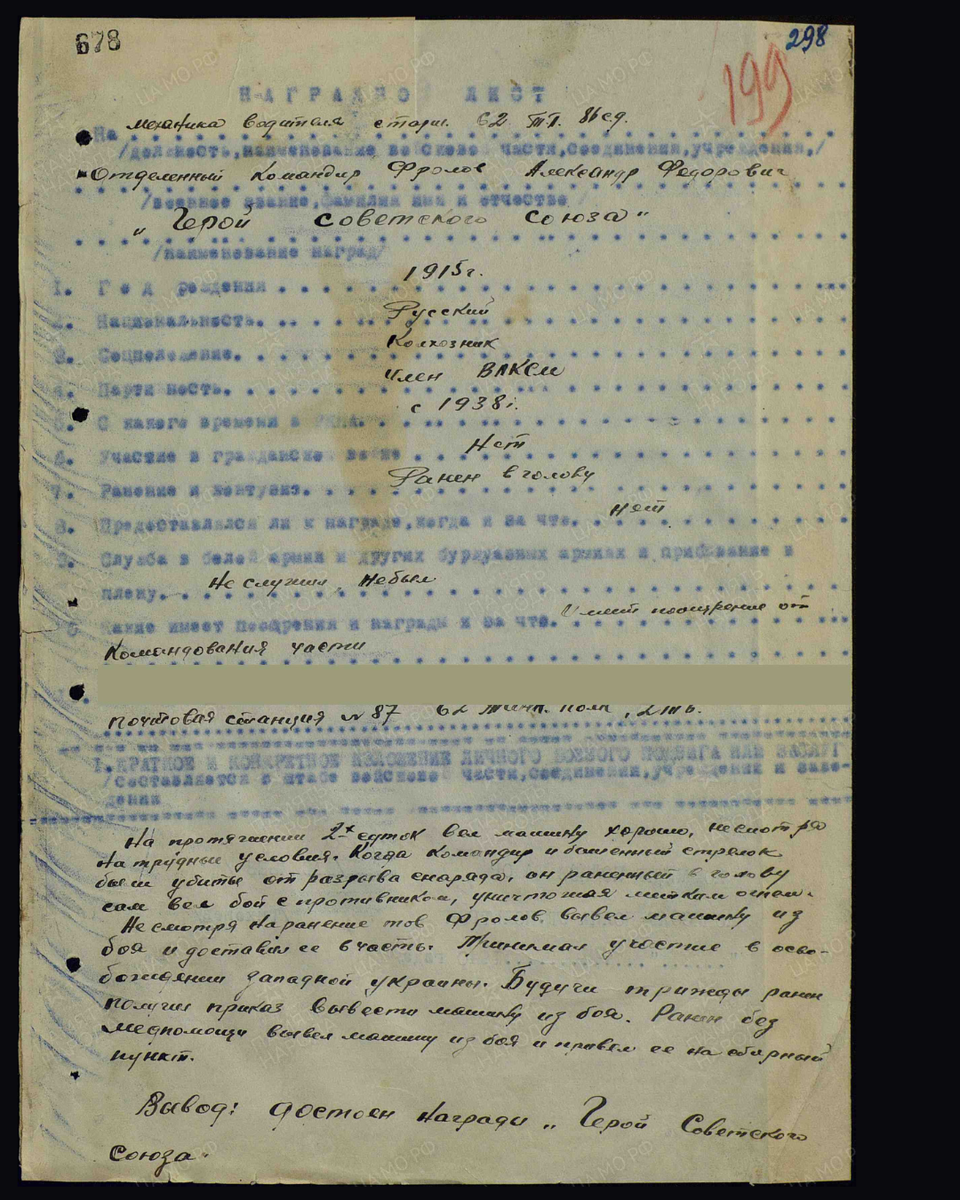 678
298
199
НАГРАДНО ЛИСТ
На механика водителя старш. 62 ТП.
/должность,наименование войсковой части,соединения,учреждения,/
Отделенный Командир Фролов Александр Федорович
/военное звание,фамилия имя и отчество/
"Герой Советского Союза"
/наименование наград/
1. Год рождения 1915г.
2. Национальность. Русский
3. Соцположение. Колхозник
4. Партийность. Член ВЛКСМ
5. С какого времени в РККА. с 1938г.
6. Участие в гражданской войне Нет
7. Ранение и контузия. Ранен в голову
8. Предоставлялся ли к награде,когда и за что. Нет
9. Служба в белой армии и других буржуазных армиях и пребывание в
плену. Не служил, Небыл
Какие имеет Поощрения и награды и за что. Имеет поощрение от
Командования части
почтовая станция №87 62 танк. полк, 2тб.
I. КРАТКОЕ И КОНКРЕТНОЕ ИЗЛОЖЕНИЕ ЛИЧНОГО БОЕВОГО ПОДВИГА ИЛИ ЗАСЛУГ
/составляется в штабе войсковой части,соединения,учреждения и заве-
дения
На протяжении 2х суток вел машину хорошо, несмотря
на трудные условия. Когда командир и башенный стрелок
были убиты от разрыва снаряда, он раненный в голову
сам вел бой с противником, уничтожая метким огнем.
Несмотря на ранение тов Фролов вывел машину из
боя и доставил ее в часть. Принимал участие в осво-
бождении западной украины. Будучи трижды ранен
получил приказ вывести машину из боя. Ранен без
медпомощи вывел машину из боя и привел ее на сборный
пункт.
Вывод: достоен награды "Герой Советского
Союза.